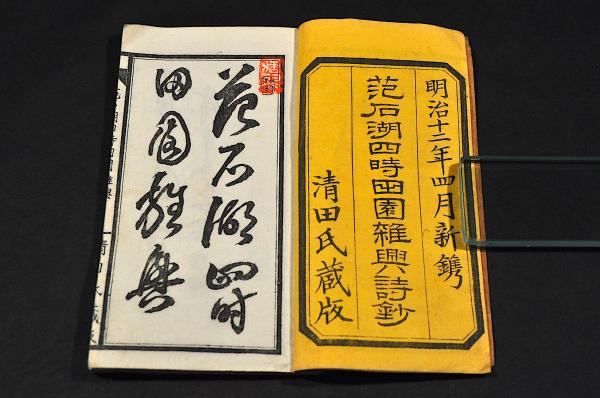 明治十二年四月新鐫
范石湖四時田園雜興詩鈔
清田氏蔵版
范石湖四时
田園雜興